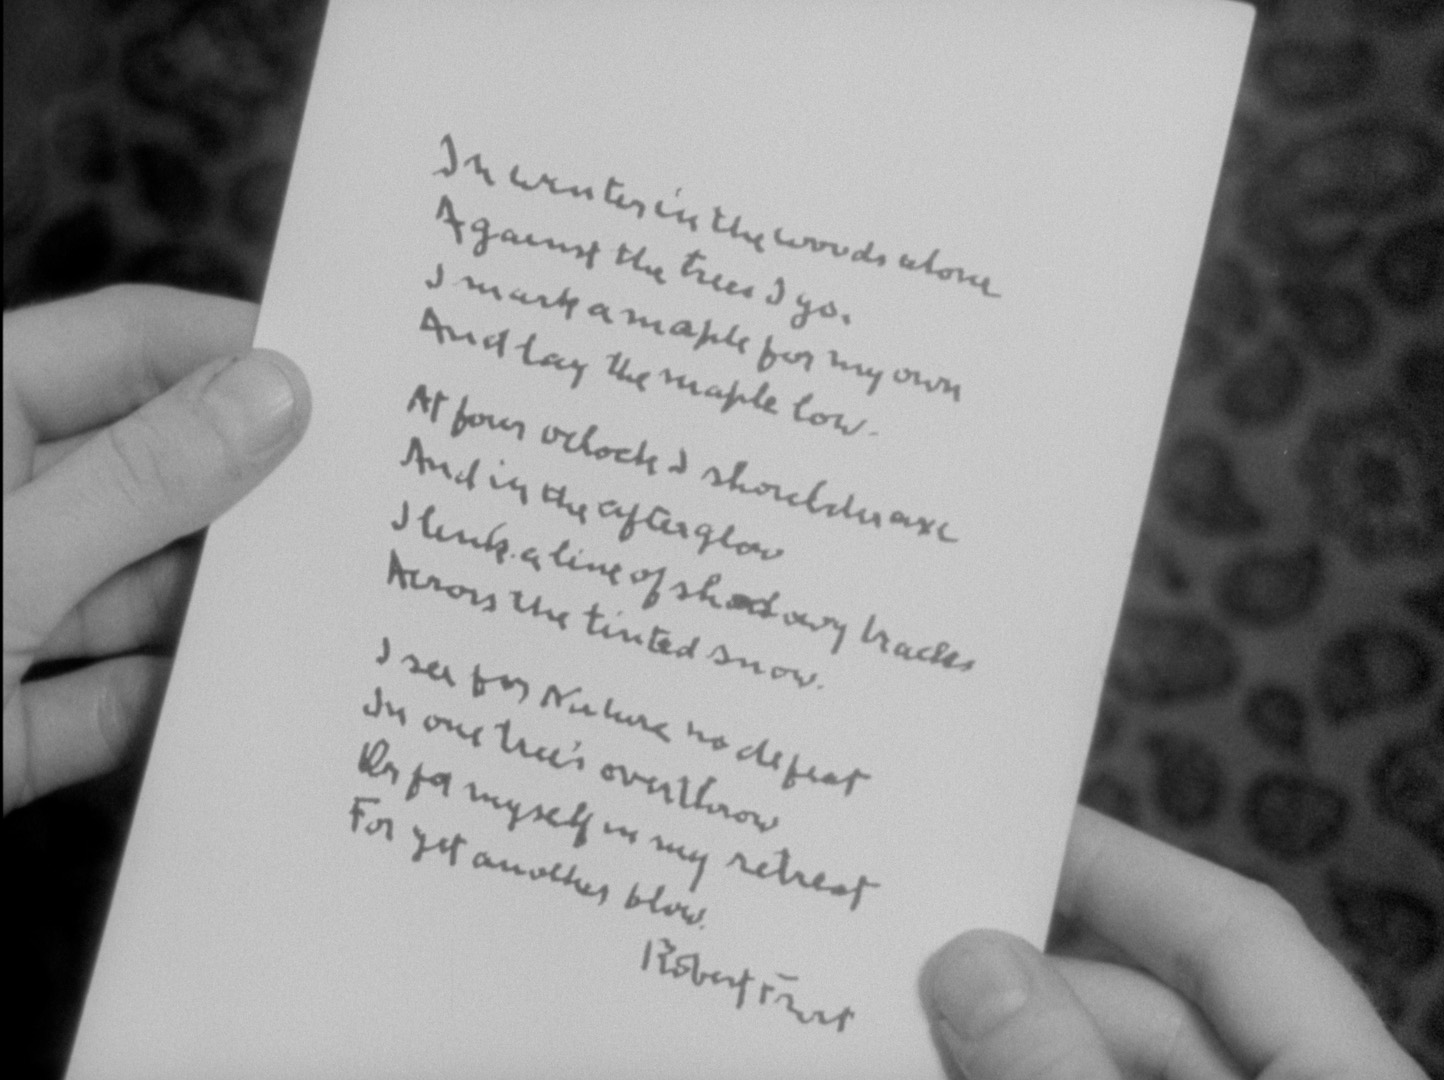 In winter in the woods alone
Against the trees I go.
I mark a maple for my own
And lay the maple low.
At four oclock I shoulder axe
And in the afterglow
I link a line of shadowy tracks
Across the tinted snow.
I see for Nature no defeat
In one tree's overthrow
Or for myself in my retreat
For yet another blow.
Robert Frost